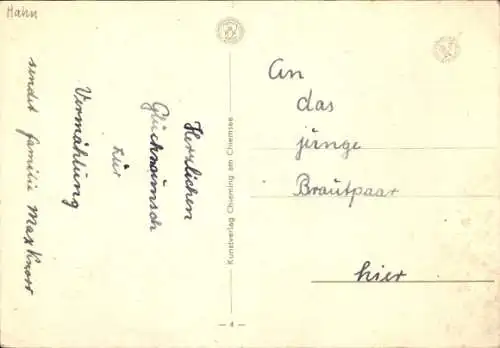 Hahn
Herzlichen
Glückwunsch
zur
Vermählung
sendet familie Max Knorr
Kunstverlag Chieming am Chiemsee
An
das
junge
Brautpaar
hier
— 4 —